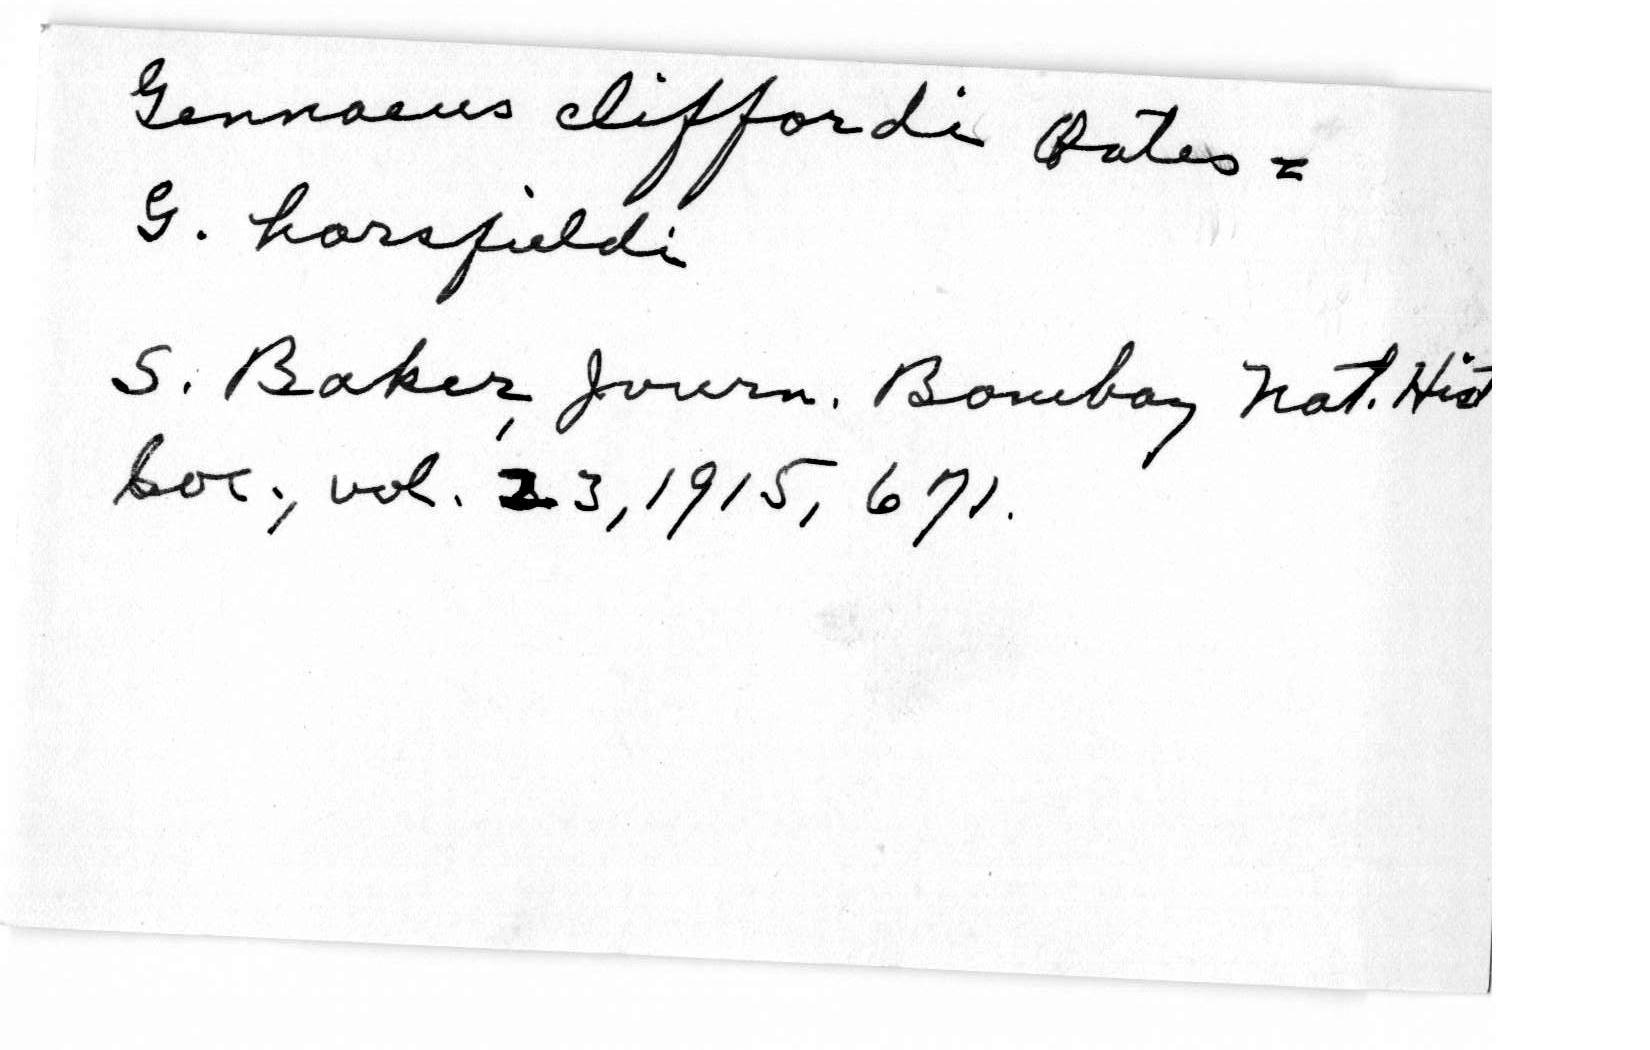 Gennaeus cliffordi Oates =
G. horsfieldi
S. Baker, Journ. Bombay Nat. Hist
Soc., vol. 23, 1915, 671.